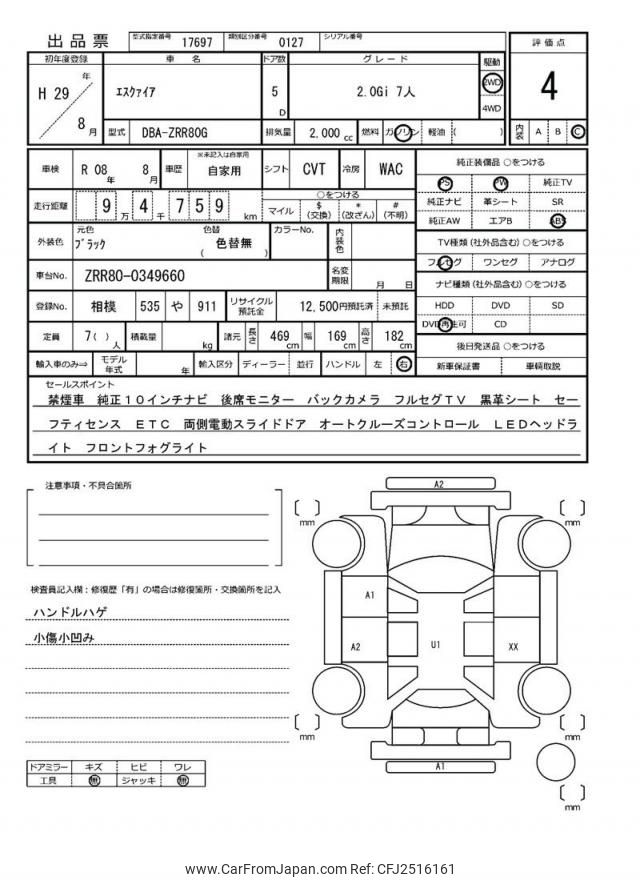 出品票 型式指定番号 17697 類別区分番号 0127 シリアル番号
初年度登録 車名 ドア数 グレード 駆動 評価点
H 29 年 8 月 エスクァイア 5 D 2.0Gi 7人 2WD 4WD 4
型式 DBA-ZRR80G 排気量 2,000 cc 燃料 ガソリン 軽油 ( ) 内装 A B C
車検 R 08 年 8 月 車歴 ※未記入は自家用 自家用 シフト CVT 冷房 WAC
走行距離 9 万 4 千 7 5 9 km ○をつける マイル $ (交換) * (改ざん) # (不明)
外装色 元色 ブラック 色替 色替無 ( ) カラーNo. 内装色
車台No. ZRR80-0349660 名変期限 月 日
登録No. 相模 535 や 911 リサイクル預託金 12,500円預託済 未預託
定員 7( ) 人 積載量 kg 諸元 長さ 469 cm 幅 169 cm 高さ 182 cm
輸入車のみ⇒ モデル年式 年 輸入区分 ディーラー 並行 ハンドル 左 右
純正装備品 ○をつける
PS PW 純正TV
純正ナビ 革シート SR
純正AW エアB ABS
TV種類 (社外品含む) ○をつける
フルセグ ワンセグ アナログ
ナビ種類 (社外品含む) ○をつける
HDD DVD SD
DVD再生可 CD
後日発送品 ○をつける
新車保証書 車輌取説
セールスポイント
禁煙車 純正10インチナビ 後席モニター バックカメラ フルセグTV 黒革シート セー
フティセンス ETC 両側電動スライドドア オートクルーズコントロール LEDヘッドラ
イト フロントフォグライト
注意事項・不具合箇所
検査員記入欄：修復歴「有」の場合は修復箇所・交換箇所を記入
ハンドルハゲ
小傷小凹み
ドアミラー キズ ヒビ ワレ
工具 無 ジャッキ 無
A2
mm mm
A1
A2 U1 XX
mm mm
A1
mm
www.CarFromJapan.com Ref: CFJ2516161